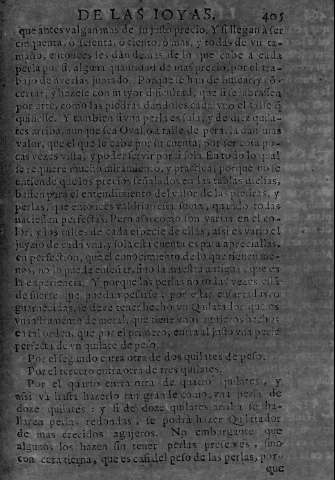 DE LAS IOYAS. 405
que antes valgan mas de su justo precio. Y si llegan a ser
cinquenta, o setenta, o ciento, o mas, y todas de vn ta-
maño, entonces les dan demas de lo que cabe a cada
perla por si, alguna quantidad de mas precio, por el tra-
bajo de averlas juntado. Porque se han de buscar y
y hazerse con mayor dificultad, que si se labrassen
por arte, como las piedras dandoles cada vno el talle que
quiere. Y tambien si vna perla es sola, y de diez quila-
tes arriba, aunque sea Oval, o a talle de pera, la dan mas
valor, que el que le cabe por su cuenta, por ser cosa po-
cas vezes vista, y poder servir por si sola. En todo lo qual
se requiere mucho miramiento, y practica; porque no se
entiende que los precios señalados en las tablas dichas,
basten para el entendimiento del valor de las piedras, y
perlas, que entonces valdrian essa suma, quando todas
naciessen perfectas. Pero assi como son varias en el co-
lor, y los talles de cada especie de ellas, assi es vario el
juyzio de cada vna, y solo esta cuenta es para apreciallas,
en perfeccion, que el conocimiento de lo que tienen me-
nos, no lo puede enseñar, sino la maestra antigua, que es
la experiencia. Y porque las perlas no todas vezes estan
de suerte, que puedan pesarse; por estar engastadas, o
guarnecidas, se deve tener hecho vn Quilatador, que es
vn instrumento de metal, que tiene vnos hechos
con tal orden, que por el primero, entra al justo vna perla
perfecta de vn quilate de peso.
Por el segundo entra otra de dos quilates de peso.
Por el tercero entra otra de tres quilates.
Por el quarto entra otra de quatro quilates, y
assi va hasta hazerlo tan grande como vna perla de
doze quilates: y si de doze quilates arriba se ha-
llaren perlas redondas, se podrà hazer Quilatador
de mas crecidos agujeros. No embargante que
algunos los hazen sin tener perlas presentes, sino
con cera tierna, que es casi del peso de las perlas, por-
que